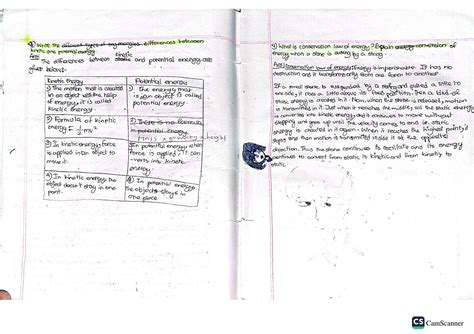 Q) Write the differences between
kinetic and potential energy
kinetic
The differences between and potential energy are
given below:-
Kinetic Energy
1) The motion that is created
in an object with the help
of energy, it is called
kinetic energy.
2) Formula of kinetic
energy = 1/2 mv²
3) In kinetic energy, force
is applied in an object to
move it.
4) In kinetic energy the
object doesn't stay in one
point.
Potential energy
1) The energy that
is in an object is called
potential energy
2) There is no formula
in potential energy
height
3) In potential energy, when
force is applied, it can
verts into kinetic
energy.
4) In potential energy
the objects stays in
one place
Q) What is conservation law of energy? Explain energy conversion of
energy when a stone is by a string.
Ans) Conservation law of energy: Energy is imperishable. It has no
destruction and it transforms only from one form to another.
If a small stone is suspended by a string and pulled a little to
one side, it rises a little above its
energy is created in it. Now, when the stone is released, motion
is transmitted in it. Just when it reaches the middle, all the static energy
is converted into kinetic energy, and it continues to move without
stopping and goes up until the velocity comes to end i.e. static
energy is created in it again. When it reaches the highest point, it
stops and then motion is transmitted inside it at the opposite
direction. Thus the stone continues to oscillate and its energy
continues to convert from static to kinetic and from kinetic to
static.
CS CamScanner